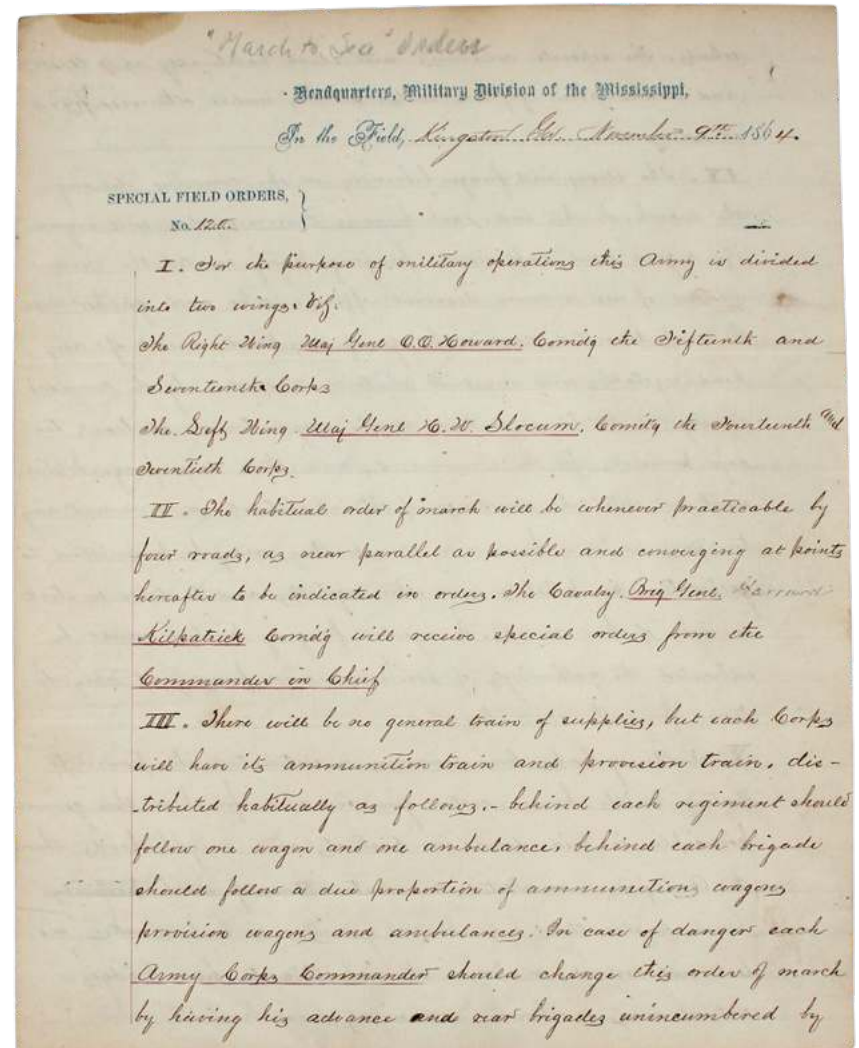 "March to Sea" Orders
Headquarters, Military Division of the Mississippi,
In the Field, Kingston Ga. November 9th 1864.
SPECIAL FIELD ORDERS,
No. 120.
I. For the purpose of military operations this Army is divided
into two wings. Viz:
The Right Wing Maj Genl O.O. Howard. Comdg the Fifteenth and
Seventeenth Corps
The Left Wing Maj Genl H. W. Slocum. Comdg the Fourteenth and
Twentieth Corps.
II. The habitual order of march will be whenever practicable by
four roads, as near parallel as possible and converging at points
hereafter to be indicated in orders. The Cavalry. Brig Genl.
Kilpatrick Comdg will receive special orders from the
Commander in Chief
III. There will be no general train of supplies, but each Corps
will have its ammunition train and provision train, dis-
-tributed habitually as follows. - behind each regiment should
follow one wagon and one ambulance, behind each brigade
should follow a due proportion of ammunition wagons
provision wagons and ambulances. In case of danger each
Army Corps Commander should change this order of march
by having his advance and rear brigades unincumbered by